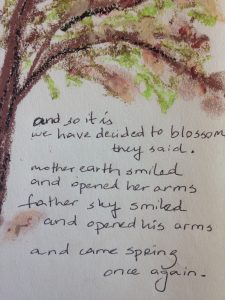 and so it is
we have decided to blossom
they said.
mother earth smiled
and opened her arms
father sky smiled
and opened his arms
and came spring
once again.